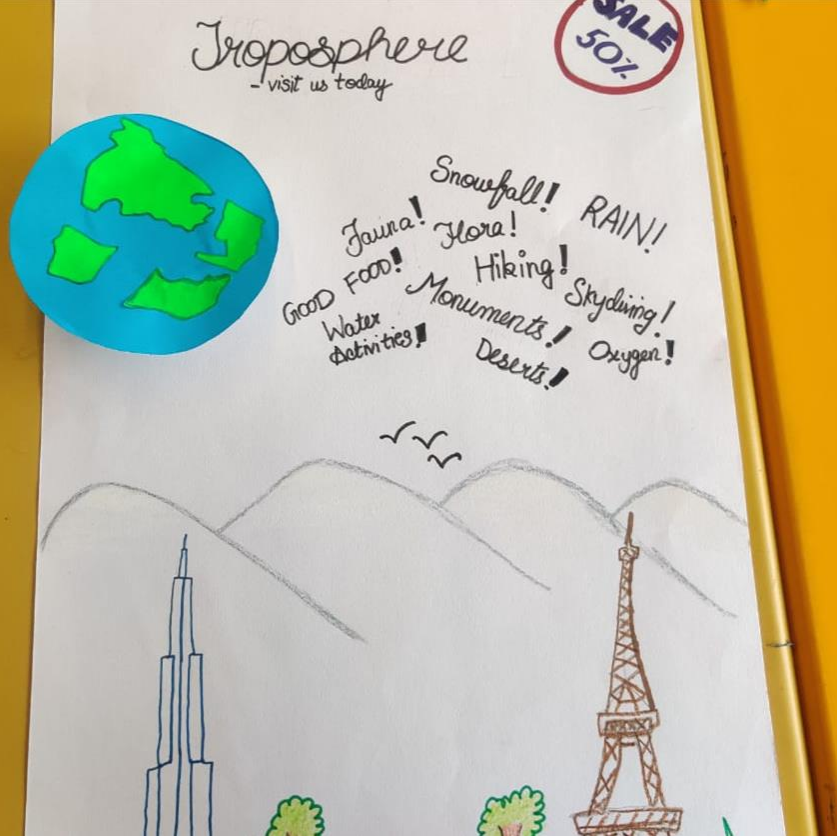 Troposphere
- visit us today
SALE
50%
Snowfall!
RAIN!
Fauna!
Flora!
GOOD FOOD!
Hiking!
Skydiving!
Monuments!
Water
Activities!
Oxygen!
Deserts!